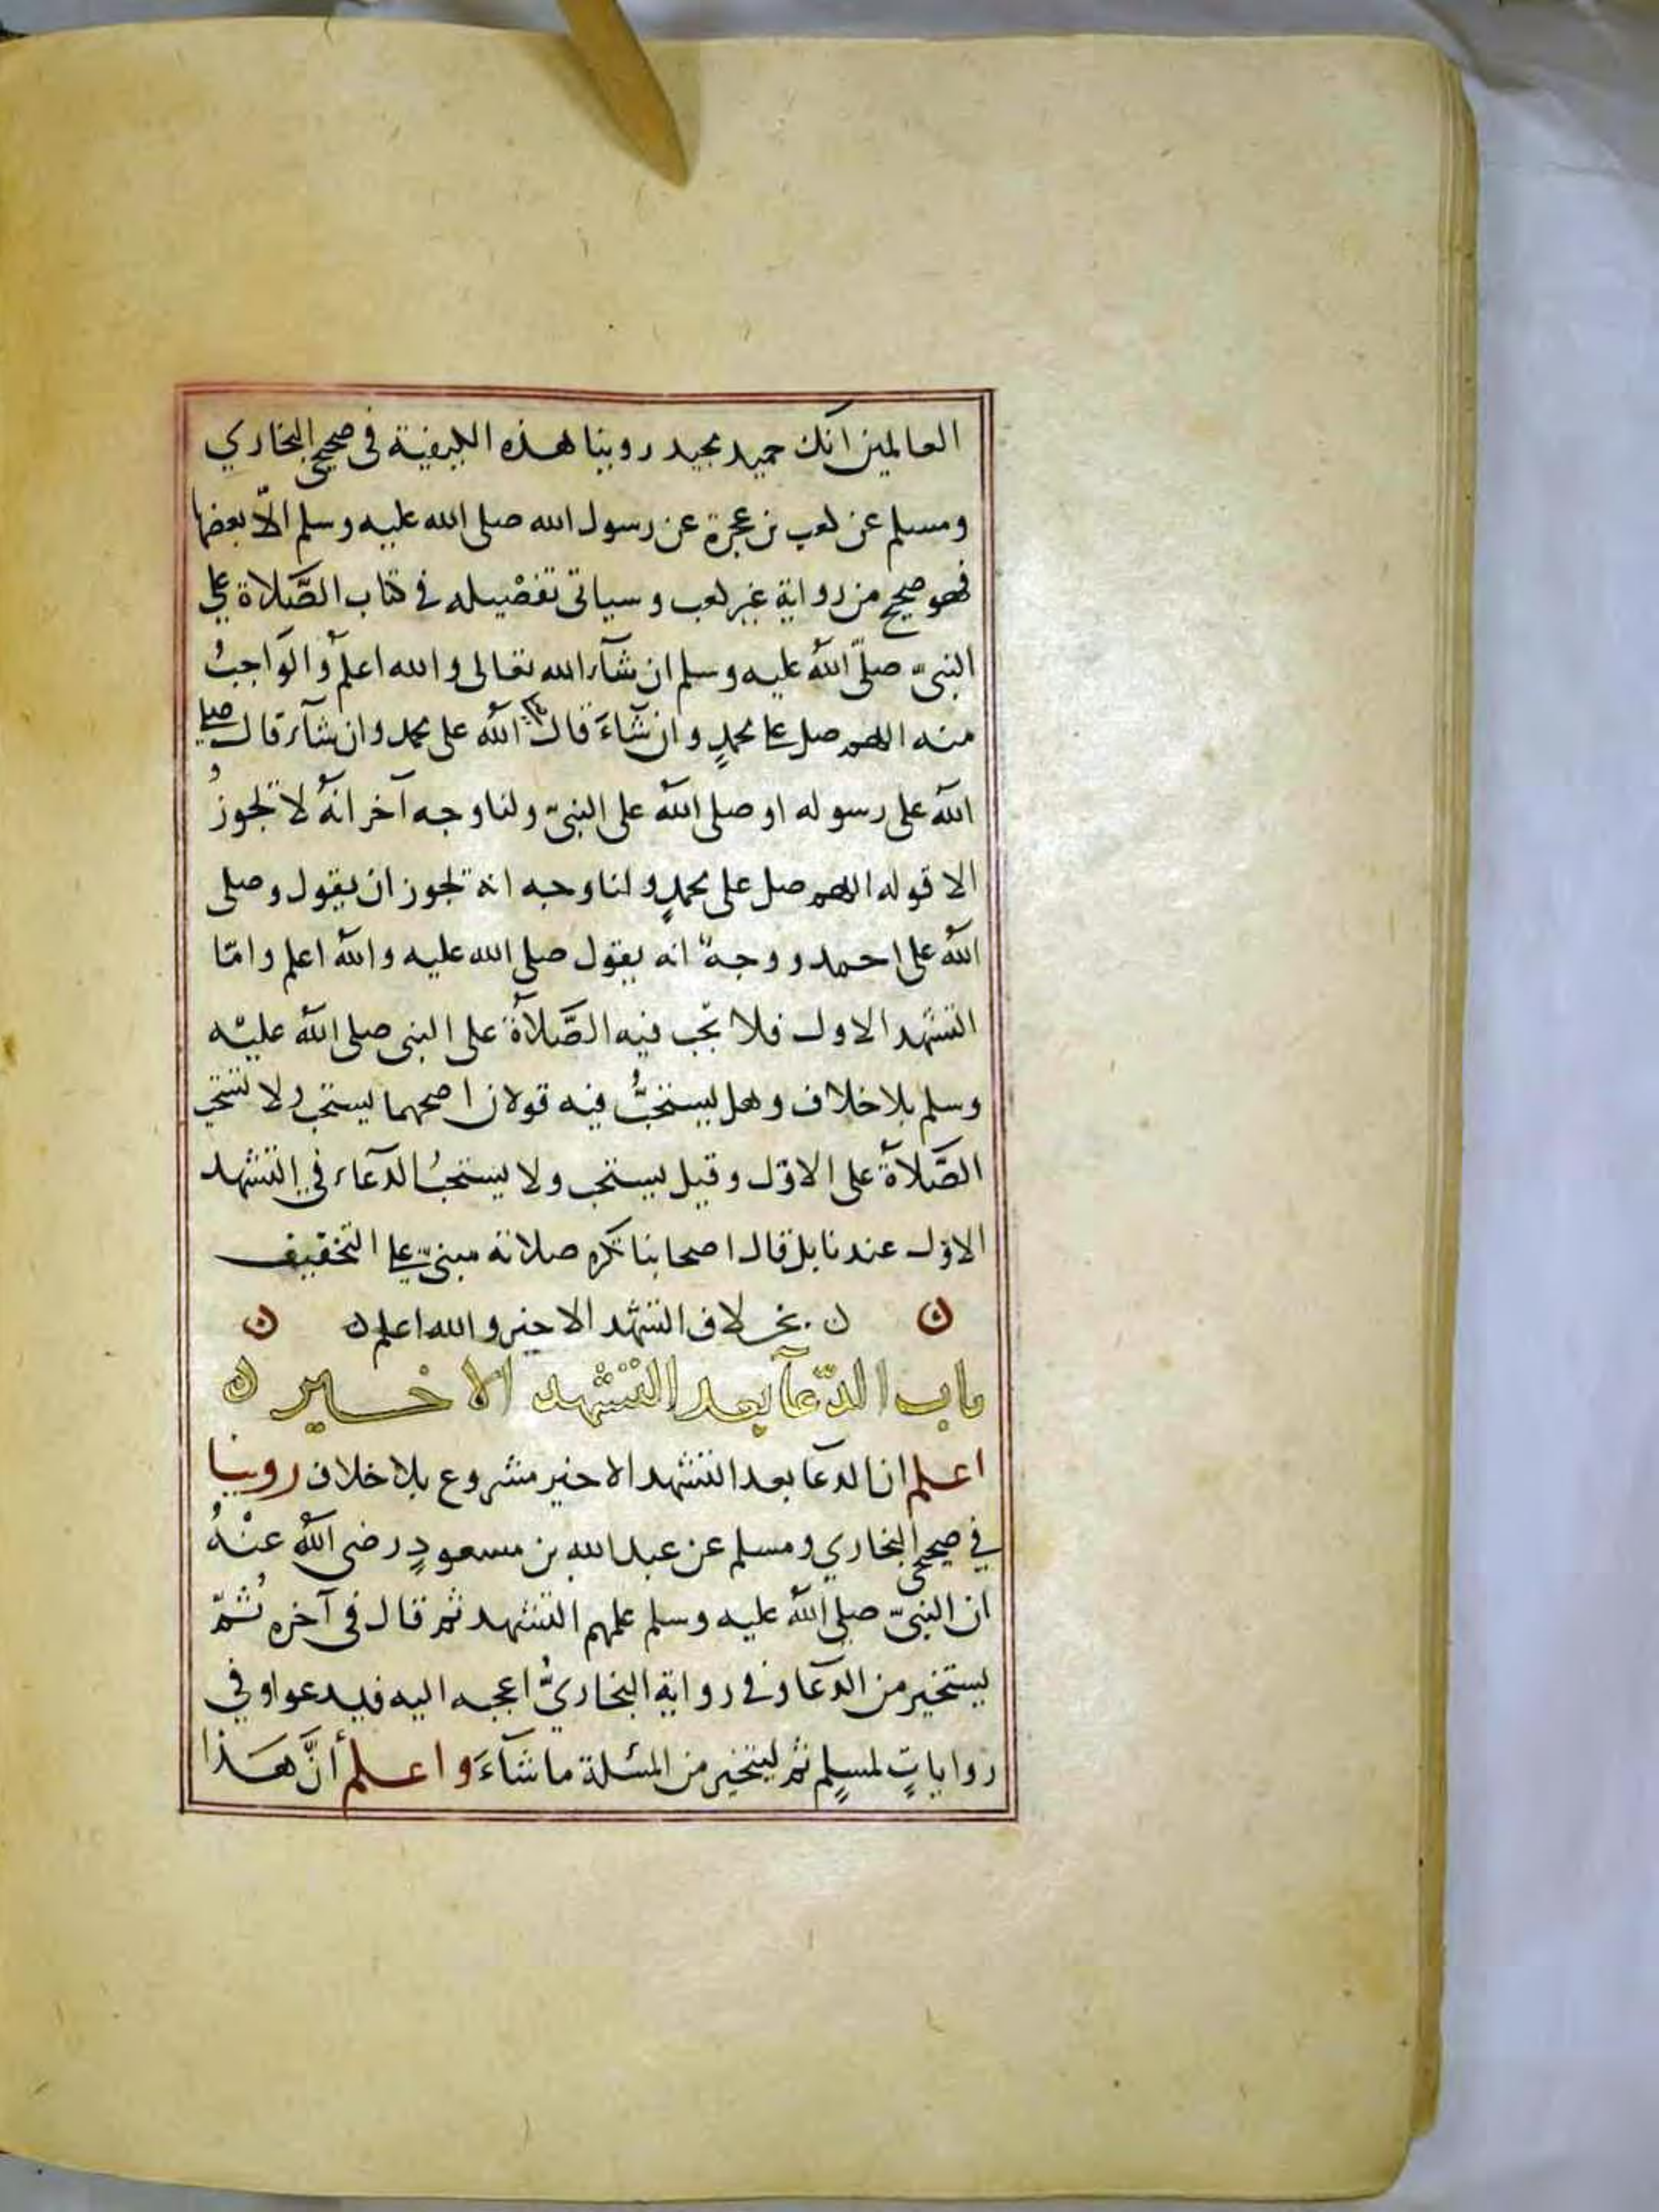 العالمين انك حميد مجيد روينا هذه الكيفية في صحيح البخاري
ومسلم عن كعب بن عجرة عن رسول الله صلى الله عليه وسلم الّا بعضها
فهو صحيح من رواية غير كعب وسياتي تفصْيله في كتاب الصَّلاة على
النبيّ صلّى اللهُ عليه وسلم ان شآء الله تعالى والله اعلم وَالوَاجبُ
منه اللهم صل على محمدٍ وان شَآءَ قال الله على محمد وان شآء قال صلى
الله على رسوله او صلى الله على النبيّ ولنا وجه آخر انهُ لا تجوزُ
الا قوله اللهم صل على محمدٍ ولنا وجه انه تجوز ان يقول وصلى
الله على احمد ووجهٌ انه يقول صلى الله عليه والله اعلم وامّا
التشهد الاول فلا تجب فيه الصَّلاةُ على النبي صلى الله عليْه
وسلم بلا خلاف وهل يستحبُّ فيه قولان اصحهما يستحب ولا تستحب
الصَّلاةُ على الاوّل وقيل يستحب ولا يستحبُ الدعآء في التشهد
الاوّل عندنا بل قال اصحابنا تكره صلاته مبنيّ على التخفيف
ن بخلاف التشهد الاخير والله اعلم ن
باب الدّعآ بعد التشهد الاخير ن
اعلم ان الدعآ بعد التشهد الاخير مشروع بلا خلاف روينا
في صحيحي البخاري ومسلم عن عبد الله بن مسعودٍ رضي اللهُ عنْهُ
ان النبيّ صلى اللهُ عليه وسلم علمهم التشهد ثم قال في آخره ثُمّ
يستخير من الدعآ وفي رواية البخاريُّ اعجبه اليه فيدعوا وفي
رواياتٍ لمسلمٍ ثم ليتخير من المسئلة ما شآءَ واعلم أنَّ هَذا